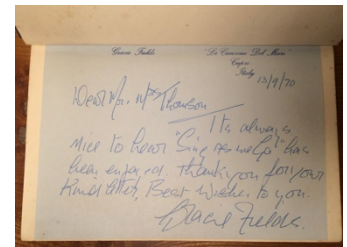 Gracie Fields
"La Canzone Del Mare"
Capri
Italy
13/9/70
Dear Mr. Mrs Thomson
Its always
nice to hear "Sing As we Go" has
been enjoyed. Thankyou for your
Kind letter, Best Wishes to you.
Gracie Fields.